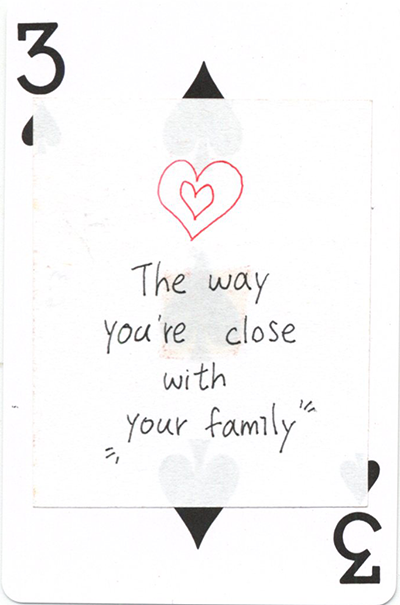 3
The way
you're close
with
your family
3